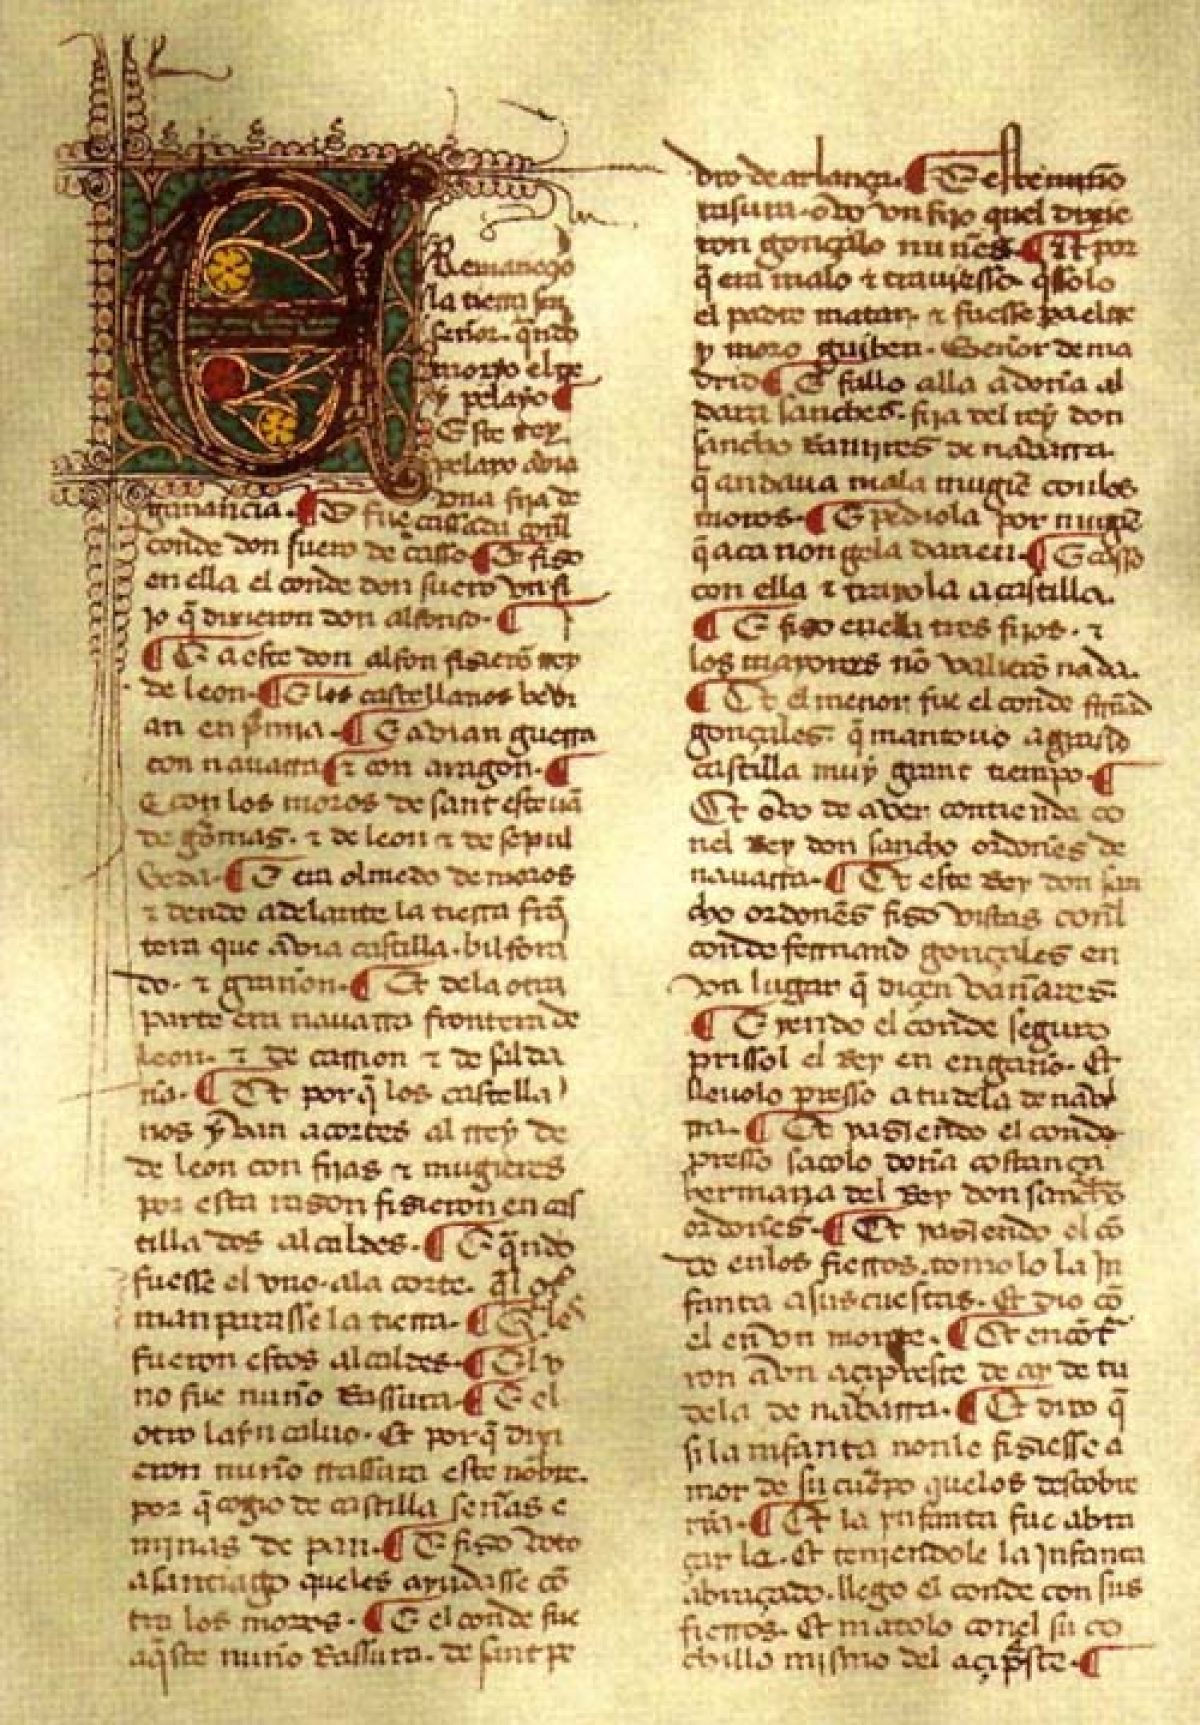 E
Remaneçio
la tierra sin
señor. qñdo
morio el rre
y pelayo ¶
Este rrey
pelayo avia
vna fija de
ganançia. ¶ E fue cassada conel
conde don suero de casso ¶ E fiso
en ella el conde don suero vn fi
jo q̃ dixieron don alfonso. ¶
¶ E a este don alfon fisierõ rrey
de leon. ¶ E los castellanos bevi
an en premia. ¶ E avian guerra
con nauarra ¶ ⁊ con aragon. ¶
E con los moros de sant esteuã
de gormas. ⁊ de leon ⁊ de sepul
veda. ¶ E era olmedo de moros
⁊ dende adelante la tierra frõ
tera que avia castilla. bilfora
do. ⁊ grañon. ¶ Et dela otra
parte era nauarra frontera de
leon. ⁊ de carrion ⁊ de salda
ña. ¶ Et por q̃ los castella
nos yvan a cortes al rrey de
de leon con fijas ⁊ mugieres
por esta rrason fisieron en cas
tilla dos alcaldes. ¶ E qñdo
fuesse el vno. ala corte. q̃l otro
manparasse la tierra. ¶ Q̃les
fueron estos alcaldes. ¶ El v
no fue nuño Rassura. ¶ E el
otro laỹn caluo. Et por q̃ dixi
eron nuño rrassura este nõbre.
por q̃ cogio de castilla señas e
minas de pan. ¶ E fiso voto
a santiago queles ayudasse cõ
tra los moros. ¶ E el conde fue
aq̃ste nuño Rassura. de sant pe
dro de arlança. ¶ E este nuño
rrasura. ovo vn fijo quel dixie
ron gonçalo nuñes. ¶ Et por
q̃ era malo ⁊ traviesso. q̃ssolo
el padre matar. ⁊ fuesse pa el rre
y moro guiben. Señor de ma
drid ¶ E fallo alla a doña al
dara sanches. fija del rey don
sancho Ramires de nabarra.
q̃ andaua mala mugier con los
moros. ¶ E pediola por mugier
q̃ aca non gela darien. ¶ E casso
con ella ⁊ traxola a castilla.
¶ E fiso en ella tres fijos. ⁊
los mayores nõ valierõ nada.
¶ Et el menor fue el conde ferrnãd
gonçales. q̃ mantovo a grãd
castilla muy grant tiempo. ¶
Et ovo de aver contienda co
nel Rey don sancho ordoñes de
nauarra. ¶ Et este Rey don san
cho ordoñes fiso vistas conel
conde ferrnand gonçales en
vn lugar q̃ diçen vañares.
¶ E yendo el conde seguro
prissol el Rey en engaño. Et
lleuolo presso a tudela de nabar
rra. ¶ Et yasiendo el conde
presso sacolo doña costança
hermana del Rey don sancho
ordoñes. ¶ Et yasiendo el cõ
de enlos fierros. tomolo la in
fanta a sus cuestas. Et dio cõ
el en vn monte. ¶ Et encõtra
ron a vn açipreste de ay de tu
dela de nabarra. ¶ Et dixo q̃
si la infanta nonle fisiesse a
mor de su cuerpo quelos descobre
ria. ¶ Et la ynfanta fue abra
çar la. Et teniendole la infanta
abraçado. llego el conde con sus
fierros. Et matolo conel su co
chillo mismo del açip̃ste. ¶